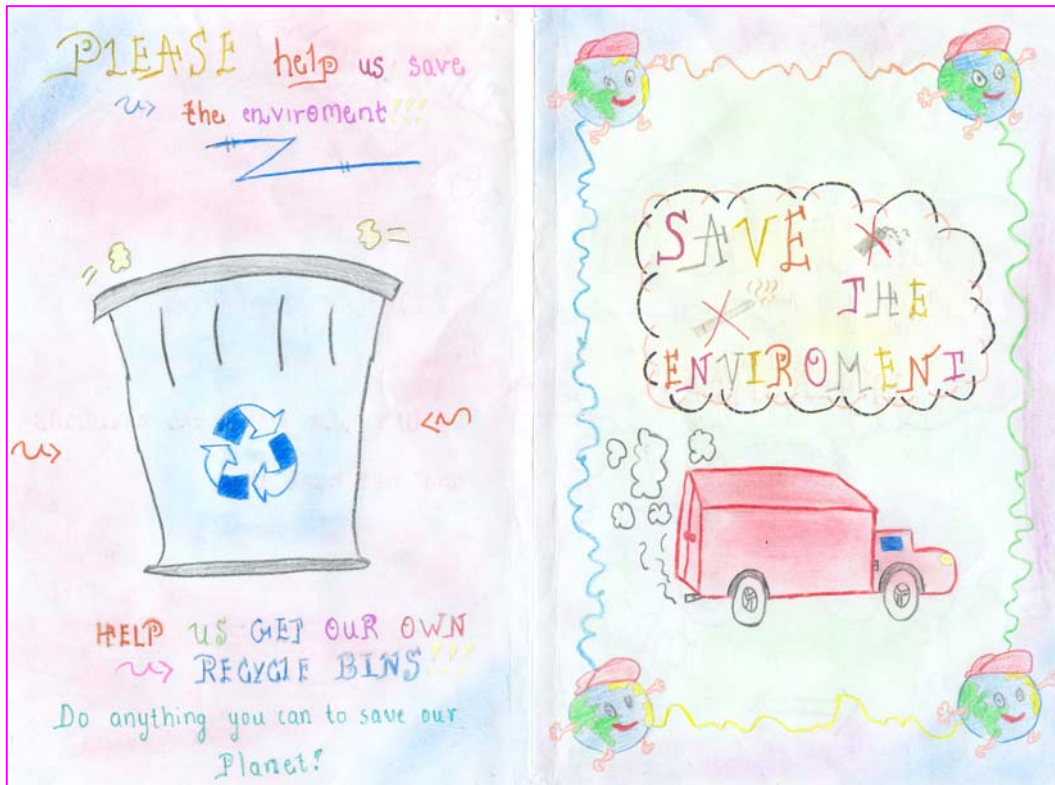 PLEASE help us save
the enviroment!!!
HELP US GET OUR OWN
RECYCLE BINS!!!
Do anything you can to save our
Planet!
SAVE
THE
ENVIROMENT